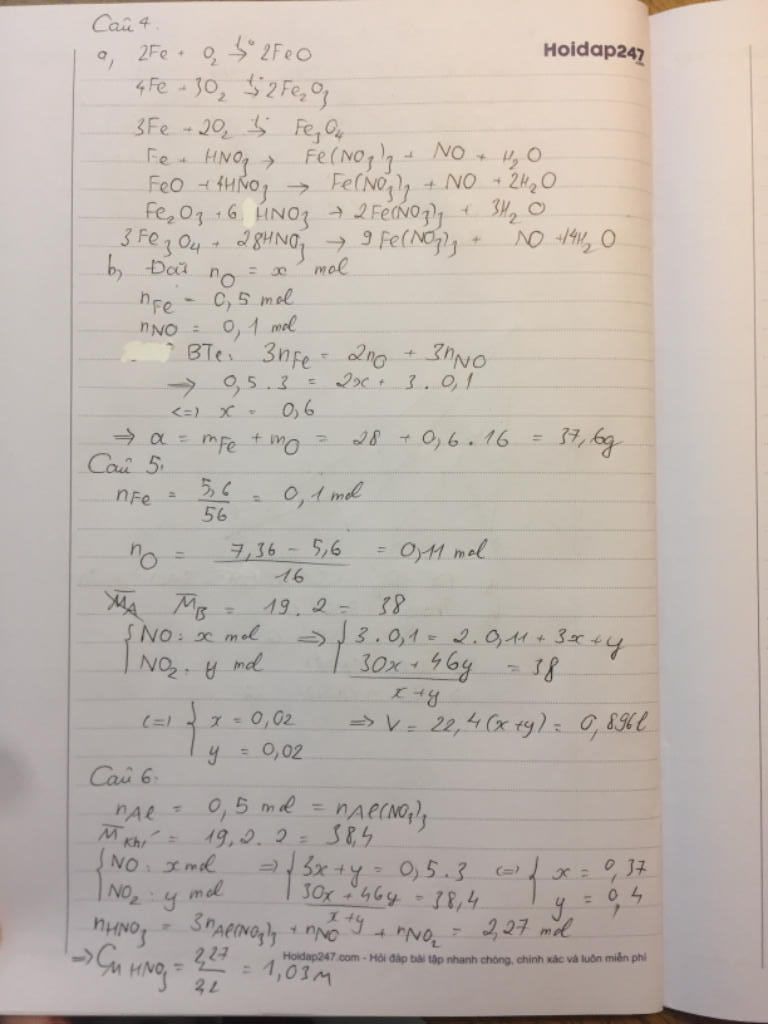 Câu 4.
Hoidap247
.com
a, 2Fe + O₂ →t° 2FeO
4Fe + 3O₂ →t° 2Fe₂O₃
3Fe + 2O₂ →t° Fe₃O₄
Fe + HNO₃ → Fe(NO₃)₃ + NO + H₂O
FeO + 4HNO₃ → Fe(NO₃)₃ + NO + 2H₂O
Fe₂O₃ + 6 HNO₃ → 2Fe(NO₃)₃ + 3H₂O
3Fe₃O₄ + 28HNO₃ → 9Fe(NO₃)₃ + NO + 14H₂O
b, Đặt nO = x mol
nFe = 0,5 mol
nNO = 0,1 mol
BTe: 3nFe = 2nO + 3nNO
→ 0,5.3 = 2x + 3.0,1
<=> x = 0,6
=> a = mFe + mO = 28 + 0,6.16 = 37,6g
Câu 5.
nFe = 5,6/56 = 0,1 mol
nO = (7,36 - 5,6)/16 = 0,11 mol
M̅A M̅B = 19.2 = 38
{ NO: x mol => { 3.0,1 = 2.0,11 + 3x + y
NO₂: y mol (30x + 46y)/(x+y) = 38
<=> { x = 0,02 => V = 22,4(x+y) = 0,896l
y = 0,02
Câu 6.
nAl = 0,5 mol = nAl(NO₃)₃
M̅khí = 19,2.2 = 38,4
{ NO: x mol => { 3x + y = 0,5.3 <=> { x = 0,37
NO₂: y mol (30x + 46y)/(x+y) = 38,4 y = 0,4
nHNO₃ = 3nAl(NO₃)₃ + nNO + nNO₂ = 2,27 mol
=> CM HNO₃ = 2,27/2,2 = 1,03M
Hoidap247.com - Hỏi đáp bài tập nhanh chóng, chính xác và luôn miễn phí